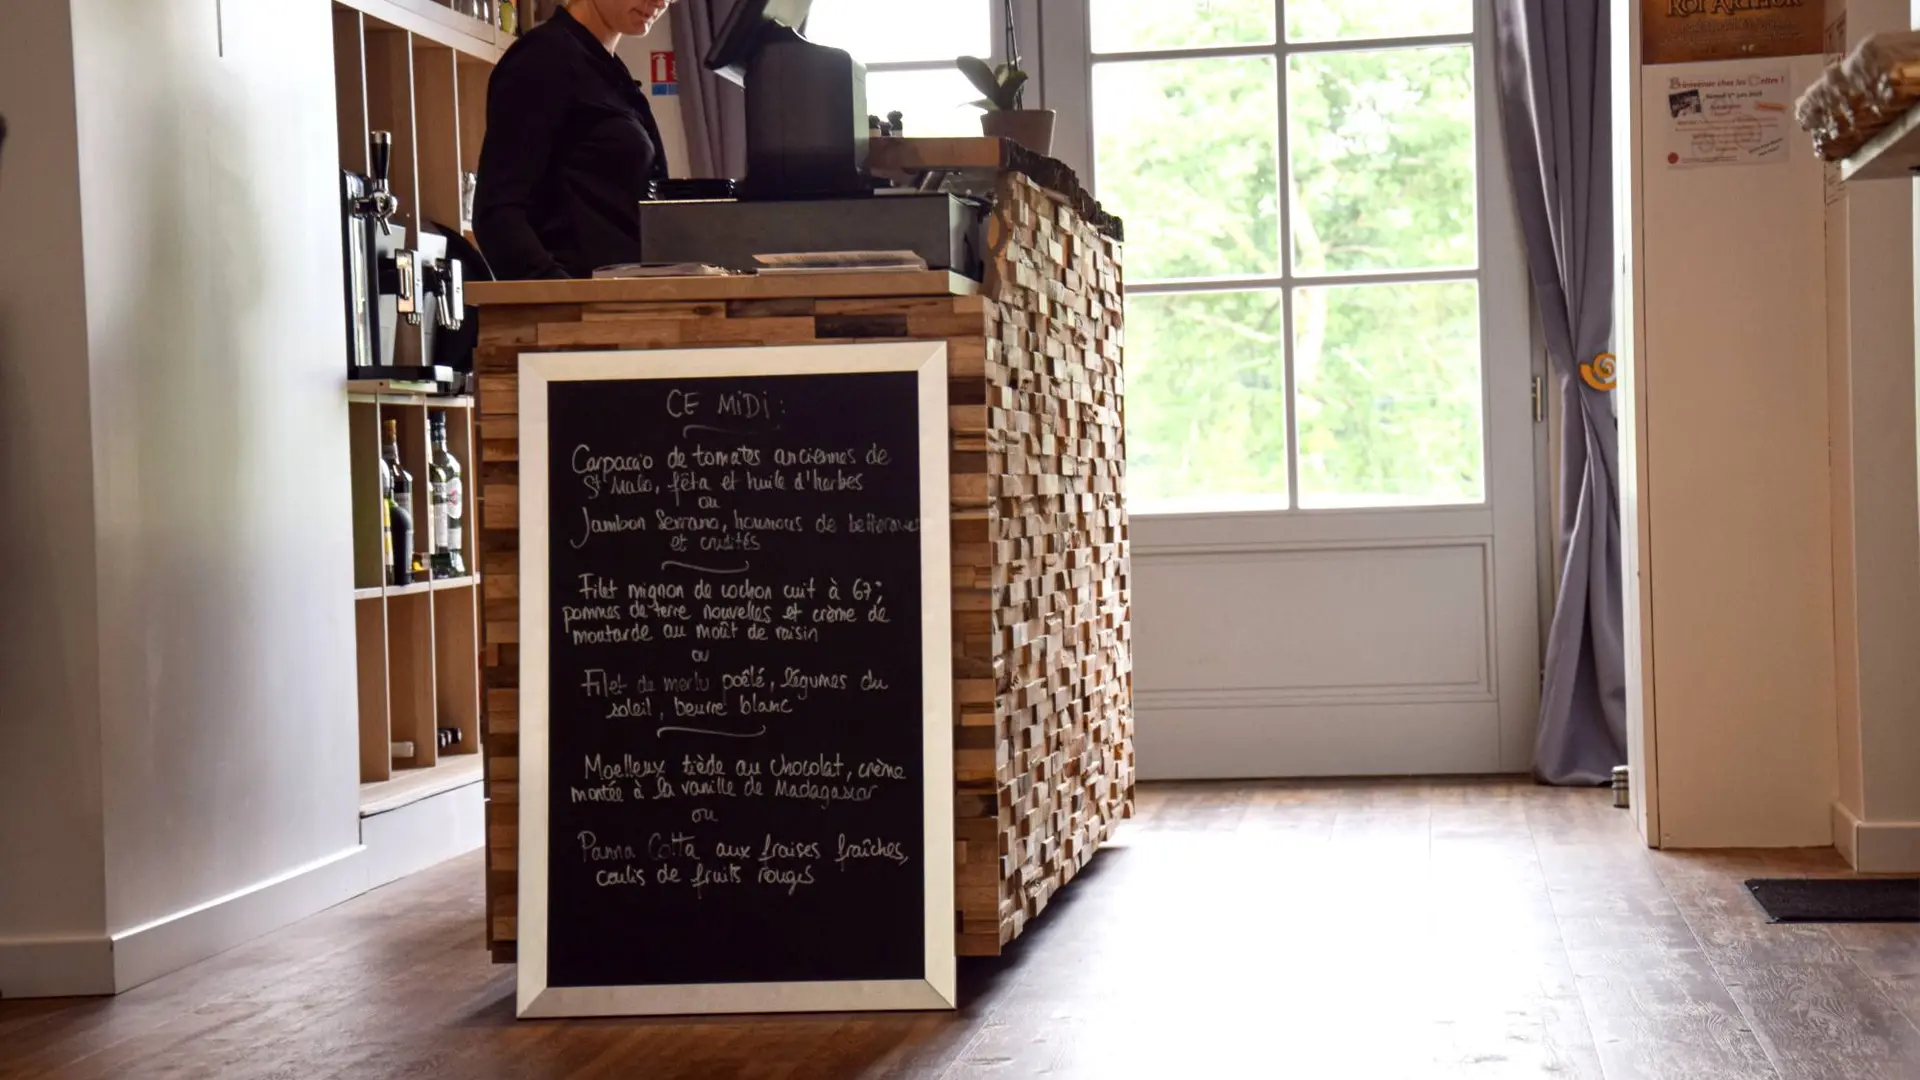 ROI ARTHUR
Bienvenue chez les Celtes !
CE MIDI :
Carpaccio de tomates anciennes de
St Malo, fêta et huile d'herbes
ou
Jambon Serrano, houmous de betteraves
et crudités
Filet mignon de cochon cuit à 67°,
pommes de terre nouvelles et crème de
moutarde au moût de raisin
ou
Filet de merlu poêlé, légumes du
soleil, beurre blanc
Moelleux tiède au chocolat, crème
montée à la vanille de Madagascar
ou
Panna Cotta aux fraises fraîches,
coulis de fruits rouges